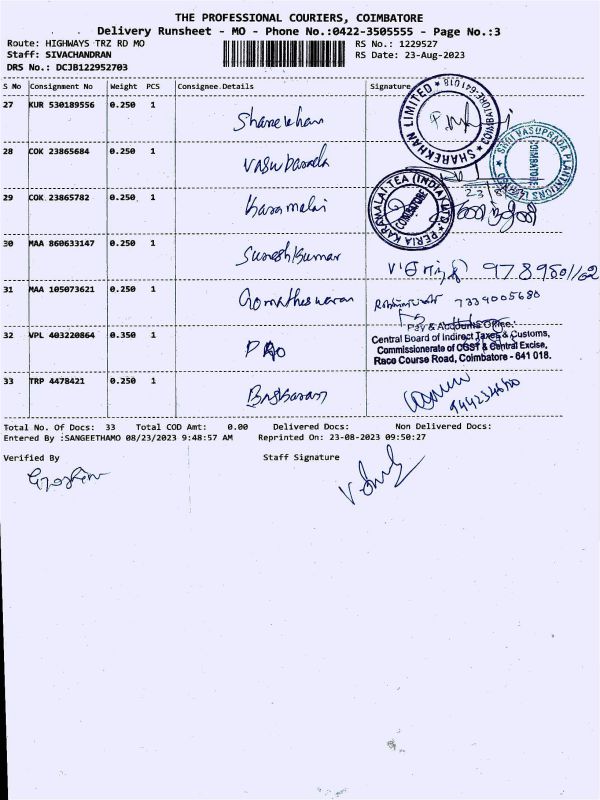 THE PROFESSIONAL COURIERS, COIMBATORE
Delivery Runsheet - MO - Phone No.:0422-3505555 - Page No.:3
Route: HIGHWAYS TRZ RD MO
RS No.: 1229527
Staff: SIVACHANDRAN
RS Date: 23-Aug-2023
DRS No.: DCJB122952703
S No Consignment No Weight PCS Consignee Details Signature
27 KUR 530189556 0.250 1 Sharekhan
SHAREKHAN LIMITED * COIMBATORE-641018 *
28 COK 23865684 0.250 1
SHRI VASUPRADA PLANTATIONS LTD COIMBATORE
29 COK 23865782 0.250 1 Karamalai
PERIA KARAMALAI TEA (INDIA) LTD. COIMBATORE
30 MAA 860633147 0.250 1 Suresh Kumar
31 MAA 105073621 0.250 1 Gomatheswaran
7339005680
32 VPL 403220864 0.350 1 PAO
Pay & Accounts Office,
Central Board of Indirect Taxes & Customs,
Commissionerate of CGST & Central Excise,
Race Course Road, Coimbatore - 641 018.
33 TRP 4478421 0.250 1 Baskaran
Total No. Of Docs: 33 Total COD Amt: 0.00 Delivered Docs: Non Delivered Docs:
Entered By :SANGEETHAMO 08/23/2023 9:48:57 AM Reprinted On: 23-08-2023 09:50:27
Verified By Staff Signature